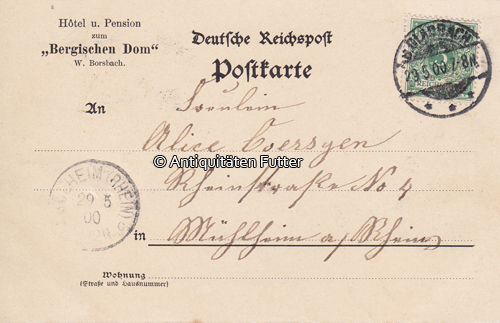 Hôtel u. Pension
zum
„Bergischen Dom"
W. Borsbach.
Deutsche Reichspost
Postkarte
29.5.00 7-8N.
An
Fräulein
Alice Coersgen
© Antiquitäten Futter
Rheinstraße No 4
in Mühlheim a/Rhein
HEIM (RHEIN)
29 5
00
Wohnung
(Straße und Hausnummer)